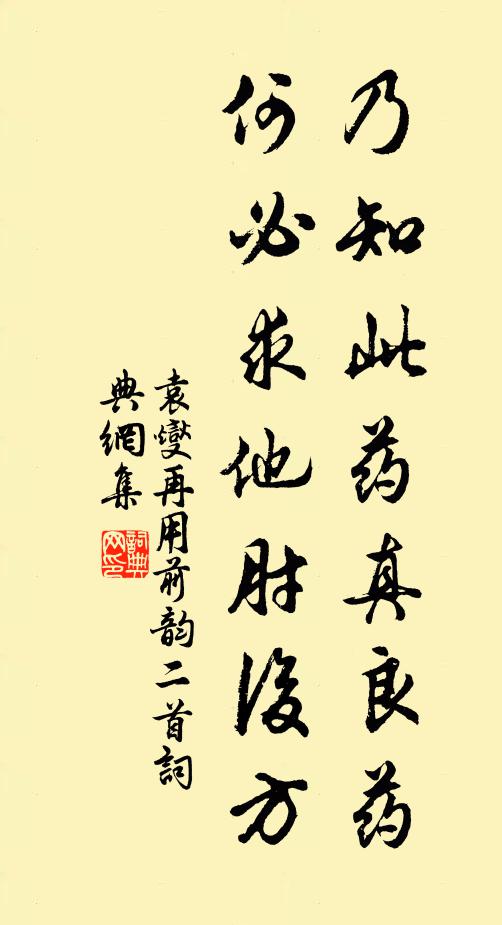 乃知此药真良药
何必求他肘後方
袁燮再用前韵二首詞
典網集
詞典
网印